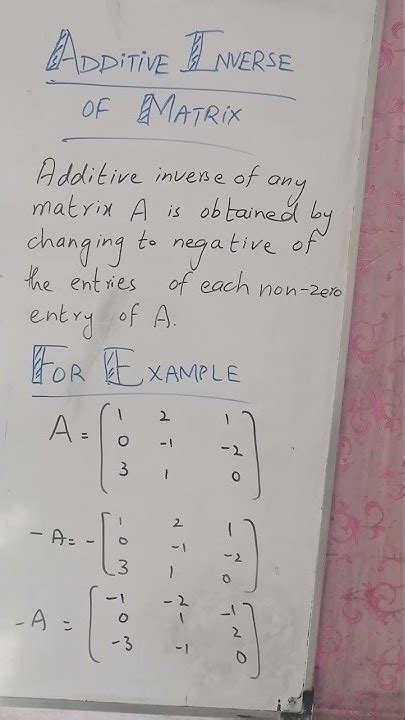 ADDITIVE INVERSE
OF MATRIX
Additive inverse of any
matrix A is obtained by
changing to negative of
the entries of each non-zero
entry of A.
FOR EXAMPLE
A = [1 2 1
0 -1 -2
3 1 0]
-A = -[1 2 1
0 -1 -2
3 1 0]
-A = [-1 -2 -1
0 1 2
-3 -1 0]